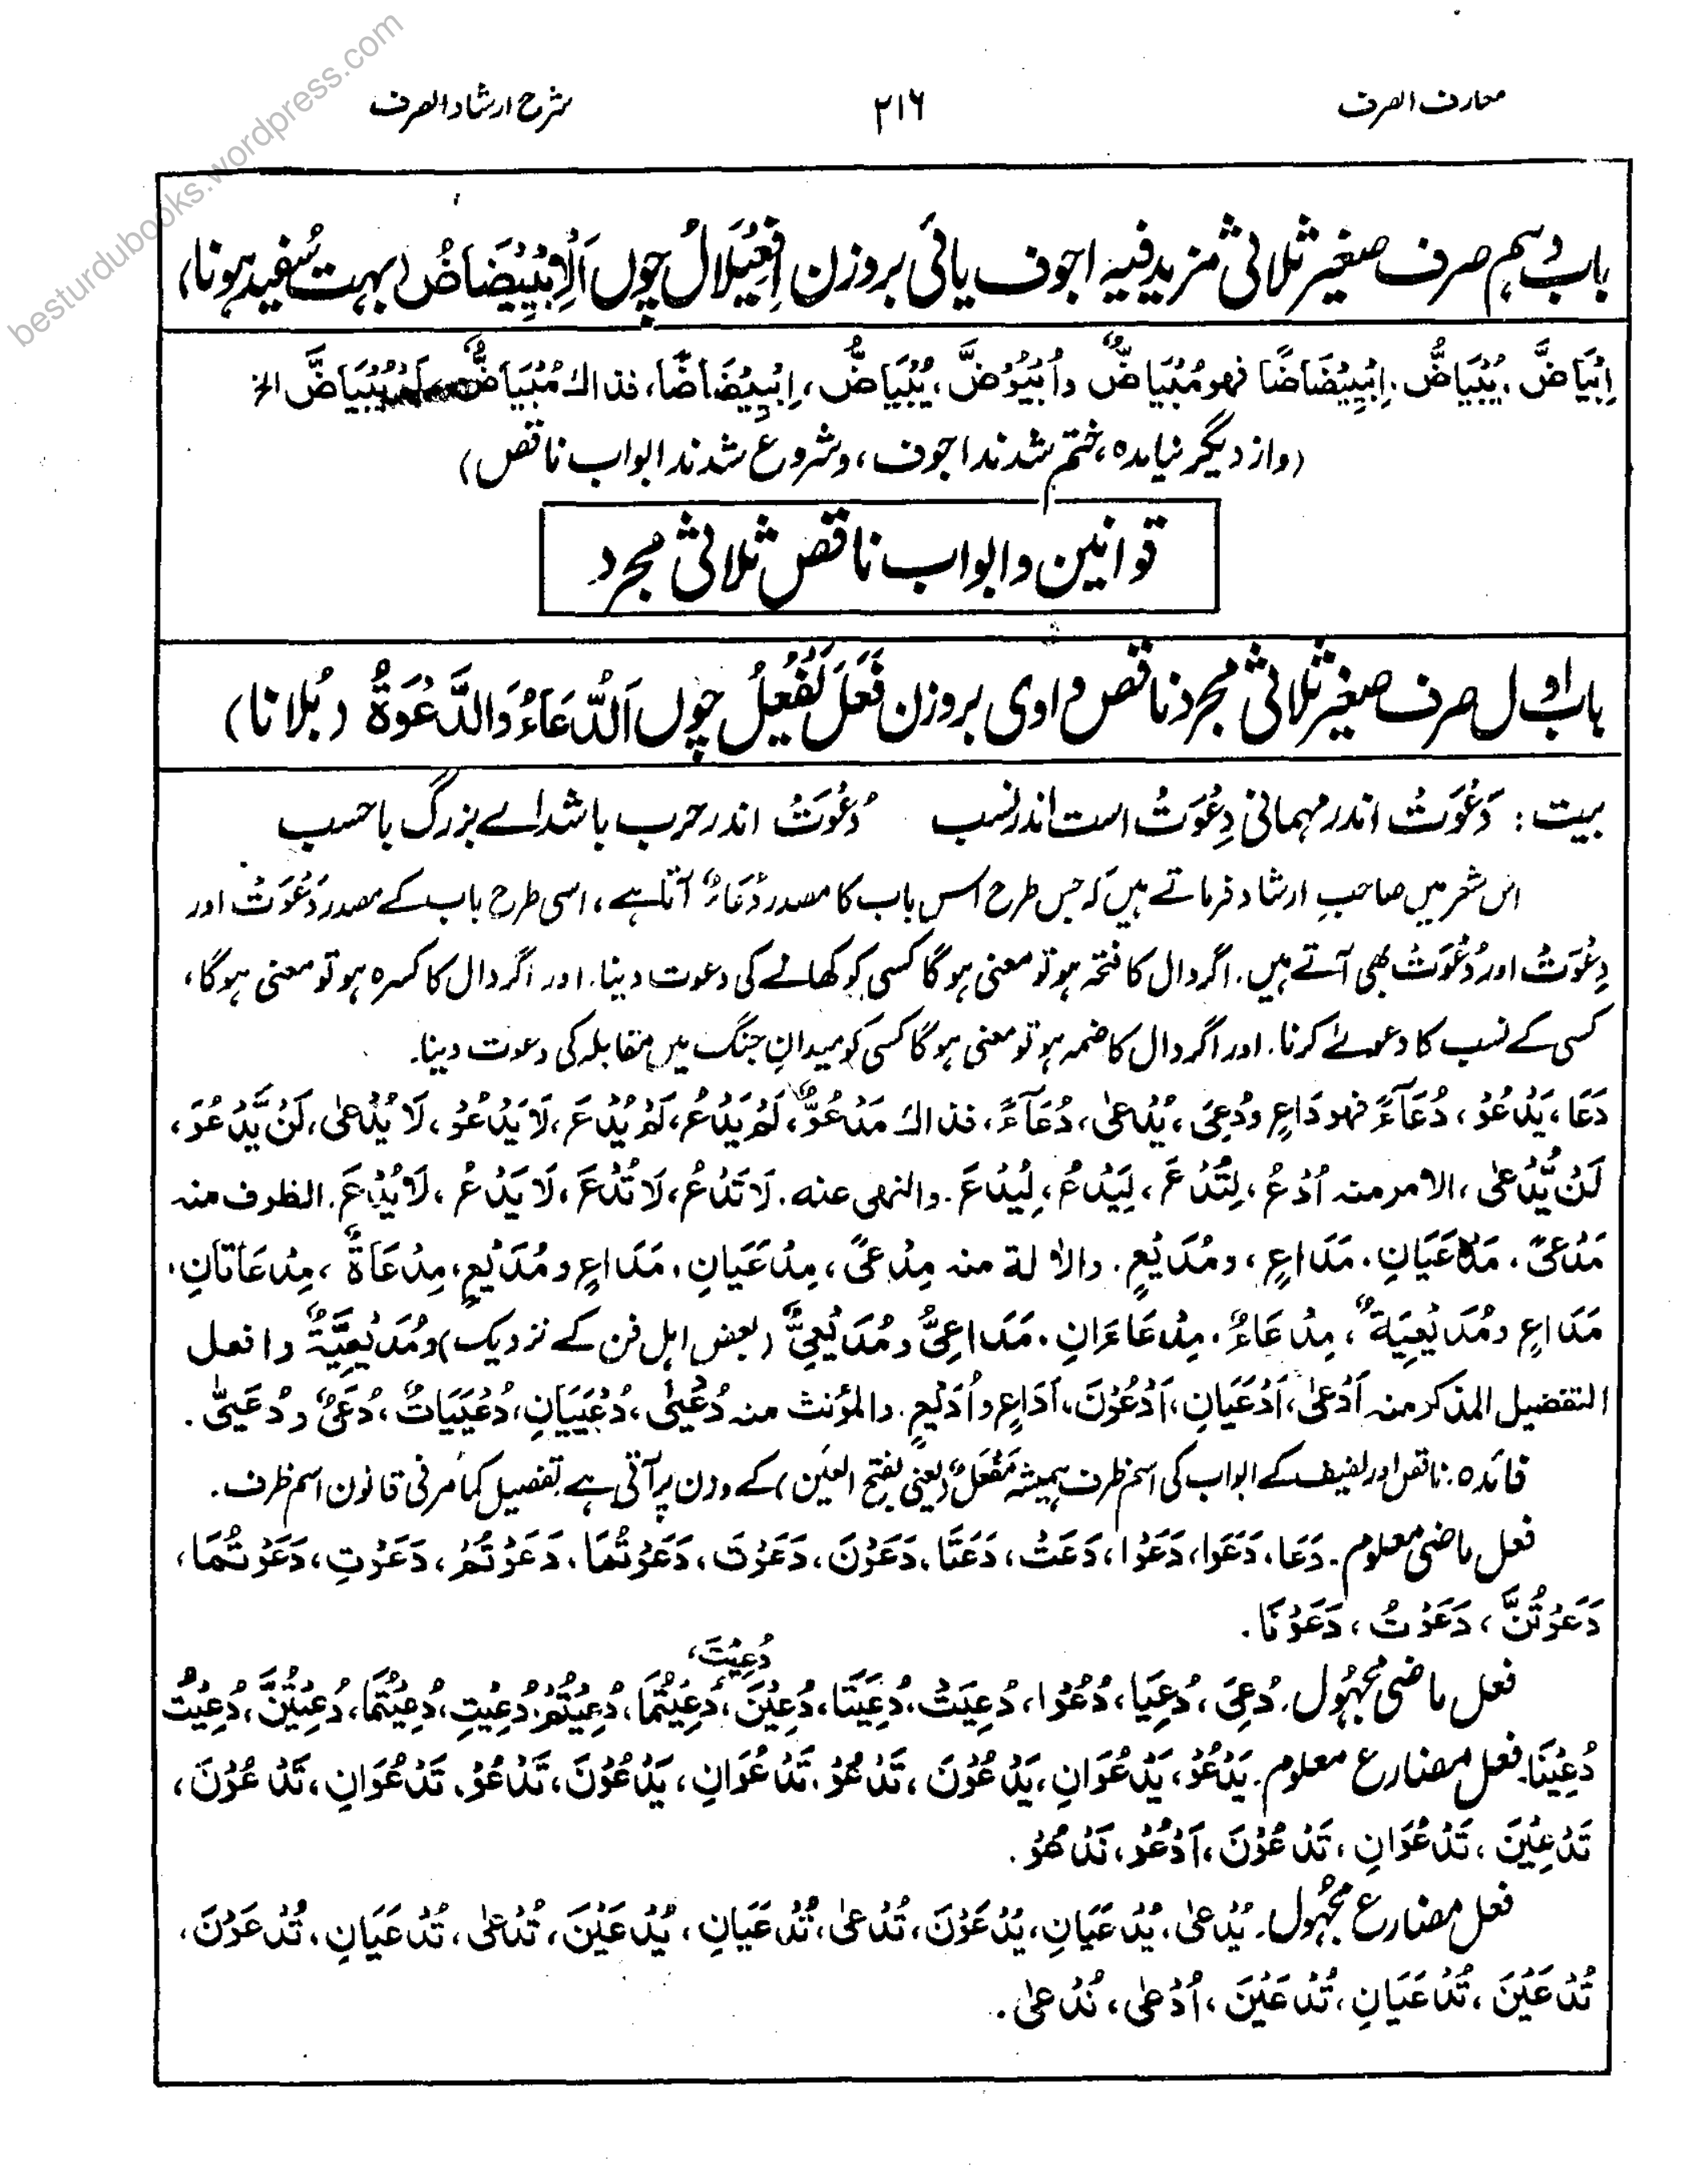 معارف الصرف ۲۱۶ شرح ارشاد الصرف
باب دہم صرف صغیر ثلاثی مزید فیہ اجوف یائی بروزن اِفْعِیْلَالٌ چوں اَلْاِبْیِیْضَاضُ (بہت سفید ہونا)
اِبْیَاضَّ، یَبْیَاضُّ، اِبْیِیْضَاضًا فهو مُبْیَاضٌّ واُبْیُوْضَّ، یُبْیَاضُّ، اِبْیِیْضَاضًا، فذاك مُبْیَاضٌّ لَمْ یَبْیَاضَّ الخ
(واز دیگر نیامدہ، ختم شدند اجوف، وشروع شدند ابواب ناقص)
قوانین و ابواب ناقص ثلاثی مجرد
باب اول صرف صغیر ثلاثی مجرد ناقص واوی بروزن فَعَلَ یَفْعُلُ چوں اَلدُّعَاءُ وَالدَّعْوَۃُ (بُلانا)
بیت: دَعْوَتْ اندر مہمانی دِعْوَتْ است اندر نسب دُعْوَتْ اندر حرب باشد اے بزرگ با حسب
اس شعر میں صاحبِ ارشاد فرماتے ہیں کہ جس طرح اس باب کا مصدر دُعَاءٌ آتا ہے، اسی طرح باب کے مصدر دَعْوَتْ اور
دِعْوَتْ اور دُعْوَتْ بھی آتے ہیں۔ اگر دال کا فتحہ ہو تو معنی ہو گا کسی کو کھانے کی دعوت دینا۔ اور اگر دال کا کسرہ ہو تو معنی ہو گا،
کسی کے نسب کا دعوٰے کرنا۔ اور اگر دال کا ضمہ ہو تو معنی ہو گا کسی کو میدانِ جنگ میں مقابلہ کی دعوت دینا۔
دَعَا، یَدْعُوْ، دُعَآءً فهو دَاعٍ ودُعِیَ، یُدْعٰی، دُعَآءً، فذاك مَدْعُوٌّ، لَمْ یَدْعُ، لَمْ یُدْعَ، لَا یَدْعُوْ، لَا یُدْعٰی، لَنْ یَّدْعُوَ،
لَنْ یُّدْعٰی، الامر منہ اُدْعُ، لِتُدْعَ، لِیَدْعُ، لِیُدْعَ۔ والنهی عنه۔ لَا تَدْعُ، لَا تُدْعَ، لَا یَدْعُ، لَا یُدْعَ۔ الظرف منہ
مَدْعًی۔ مَدْعَیَانِ۔ مَدَاعٍ، ومُدَیْعٍ۔ والالة منہ مِدْعًی، مِدْعَیَانِ، مَدَاعٍ ومُدَیْعٍ، مِدْعَاةٌ، مِدْعَاتَانِ،
مَدَاعٍ ومُدَیْعِیَةٌ، مِدْعَاءٌ، مِدْعَاءَانِ۔ مَدَاعِیُّ ومُدَیْعِیٌّ (بعض اہل فن کے نزدیک) ومُدَیْعِیَّةٌ وافعل
التفضیل المذکر منہ اَدْعٰی، اَدْعَیَانِ، اَدْعَوْنَ، اَدَاعٍ واُدَیْعٍ۔ والمؤنث منہ دُعْیٰی، دُعْیَیَانِ، دُعْیَیَاتٌ، دُعًی ودُعَیّٰی۔
فائدہ۔ ناقص اور لفیف کے ابواب کی اسم ظرف ہمیشہ مَفْعَلٌ (یعنی بفتح العین) کے وزن پر آتی ہے تفصیل کَمَا مَر فی قانون اسم ظرف۔
فعل ماضی معلوم۔ دَعَا، دَعَوَا، دَعَوْا، دَعَتْ، دَعَتَا، دَعَوْنَ، دَعَوْتَ، دَعَوْتُمَا، دَعَوْتُمْ، دَعَوْتِ، دَعَوْتُمَا،
دَعَوْتُنَّ، دَعَوْتُ، دَعَوْنَا۔
دُعِیْتَ،
فعل ماضی مجہول۔ دُعِیَ، دُعِیَا، دُعُوْا، دُعِیَتْ، دُعِیَتَا، دُعِیْنَ، دُعِیْتُمَا، دُعِیْتُمْ، دُعِیْتِ، دُعِیْتُمَا، دُعِیْتُنَّ، دُعِیْتُ
دُعِیْنَا۔ فعل مضارع معلوم۔ یَدْعُوْ، یَدْعُوَانِ، یَدْعُوْنَ، تَدْعُوْ، تَدْعُوَانِ، یَدْعُوْنَ، تَدْعُوْ، تَدْعُوَانِ، تَدْعُوْنَ،
تَدْعِیْنَ، تَدْعُوَانِ، تَدْعُوْنَ، اَدْعُوْ، نَدْعُوْ۔
فعل مضارع مجہول۔ یُدْعٰی، یُدْعَیَانِ، یُدْعَوْنَ، تُدْعٰی، تُدْعَیَانِ، یُدْعَیْنَ، تُدْعٰی، تُدْعَیَانِ، تُدْعَوْنَ،
تُدْعَیْنَ، تُدْعَیَانِ، تُدْعَیْنَ، اُدْعٰی، نُدْعٰی۔
besturdubooks.wordpress.com